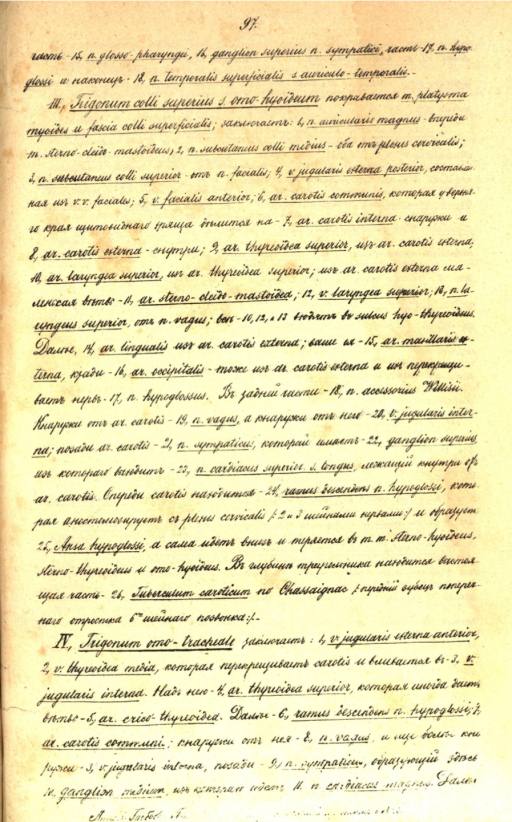 97.
часть - 15, n. glosso-pharyngei, 16, ganglion superius n. sympatici, часть - 17, n. hypo-
glossi и наконецъ - 18, n. temporalis superficialis s. auriculo-temporalis. -
III, Trigonum colli superius s. omo-hyoideum покрывается m. platysma
myoides и fascia colli superficialis; заключаетъ: 1, n. auricularis magnus - впереди
m. sterno-cleido-mastoideus, 2, n. subcutaneus colli medius - оба отъ plexus cervicalis;
3, n. subcutaneus colli superior - отъ n. facialis; 4, v. jugularis externa posterior, составлен-
ная изъ v.v. facialis; 5, v. facialis anterior; 6, ar. carotis communis, которая у верхня-
го края щитовиднаго хряща дѣлится на - 7, ar. carotis interna - снаружи и
8, ar. carotis externa - снутри; 9, ar. thyreoidea superior, изъ ar. carotis externa,
10, ar. laryngea superior, изъ ar. thyreoidea superior; изъ ar. carotis externa ма-
ленькая вѣтвь - 11, ar. sterno-cleido-mastoidea; 12, v. laryngea superior; 13, n. la-
ryngeus superior, отъ n. vagus; всѣ - 10, 12, и 13 входятъ въ sulcus hyo-thyreoideus.
Далѣе, 14, ar. lingualis изъ ar. carotis externa; выше ея - 15, ar. maxillaris ex-
terna, кзади - 16, ar. occipitalis - тоже изъ ar. carotis externa и ихъ перекрещи-
ваетъ нервъ - 17, n. hypoglossus. Въ задней части - 18, n. accessorius Willisii.
Кнаружи отъ ar. carotis - 19, n. vagus, а кнаружи отъ него - 20, v. jugularis inter-
na; позади ar. carotis - 21, n. sympaticus, который имѣетъ - 22, ganglion superius,
изъ котораго выходитъ - 23, n. cardiacus superior s. longus, лежащій кнутри отъ
ar. carotis. Спереди carotis находится - 24, ramus descendens n. hypoglossi, кото-
рая анастомозируетъ съ plexus cervicalis /: 2 и 3 шейными нервами :/ и образуетъ
25, Ansa hypoglossi, а сама идетъ внизъ и теряется въ m.m. sterno-hyoideus,
sterno-thyreoideus и omo-hyoideus. Въ глубинѣ треугольника находится
часть - 26, Tuberculum caroticum по Chassaignac /: передній попереч-
наго отростка 6го шейнаго позвонка :/. -
IV, Trigonum omo-tracheale заключаетъ: 1, v. jugularis externa anterior,
2, v. thyreoidea media, которая перекрещиваетъ carotis и вливается въ - 3, v.
jugularis interna. Надъ нею - 4, ar. thyreoidea superior, которая иногда даетъ
вѣтвь - 5, ar. crico-thyreoidea. Далѣе - 6, ramus descendens n. hypoglossi; 7,
ar. carotis communi.; кнаружи отъ нея - 8, n. vagus, и еще болѣе кна-
ружи - 3, v. jugularis interna, позади - 9, n. sympaticus, образующій здѣсь
10, ganglion medium, изъ котораго идетъ 11, n. cardiacus magnus. Далѣе